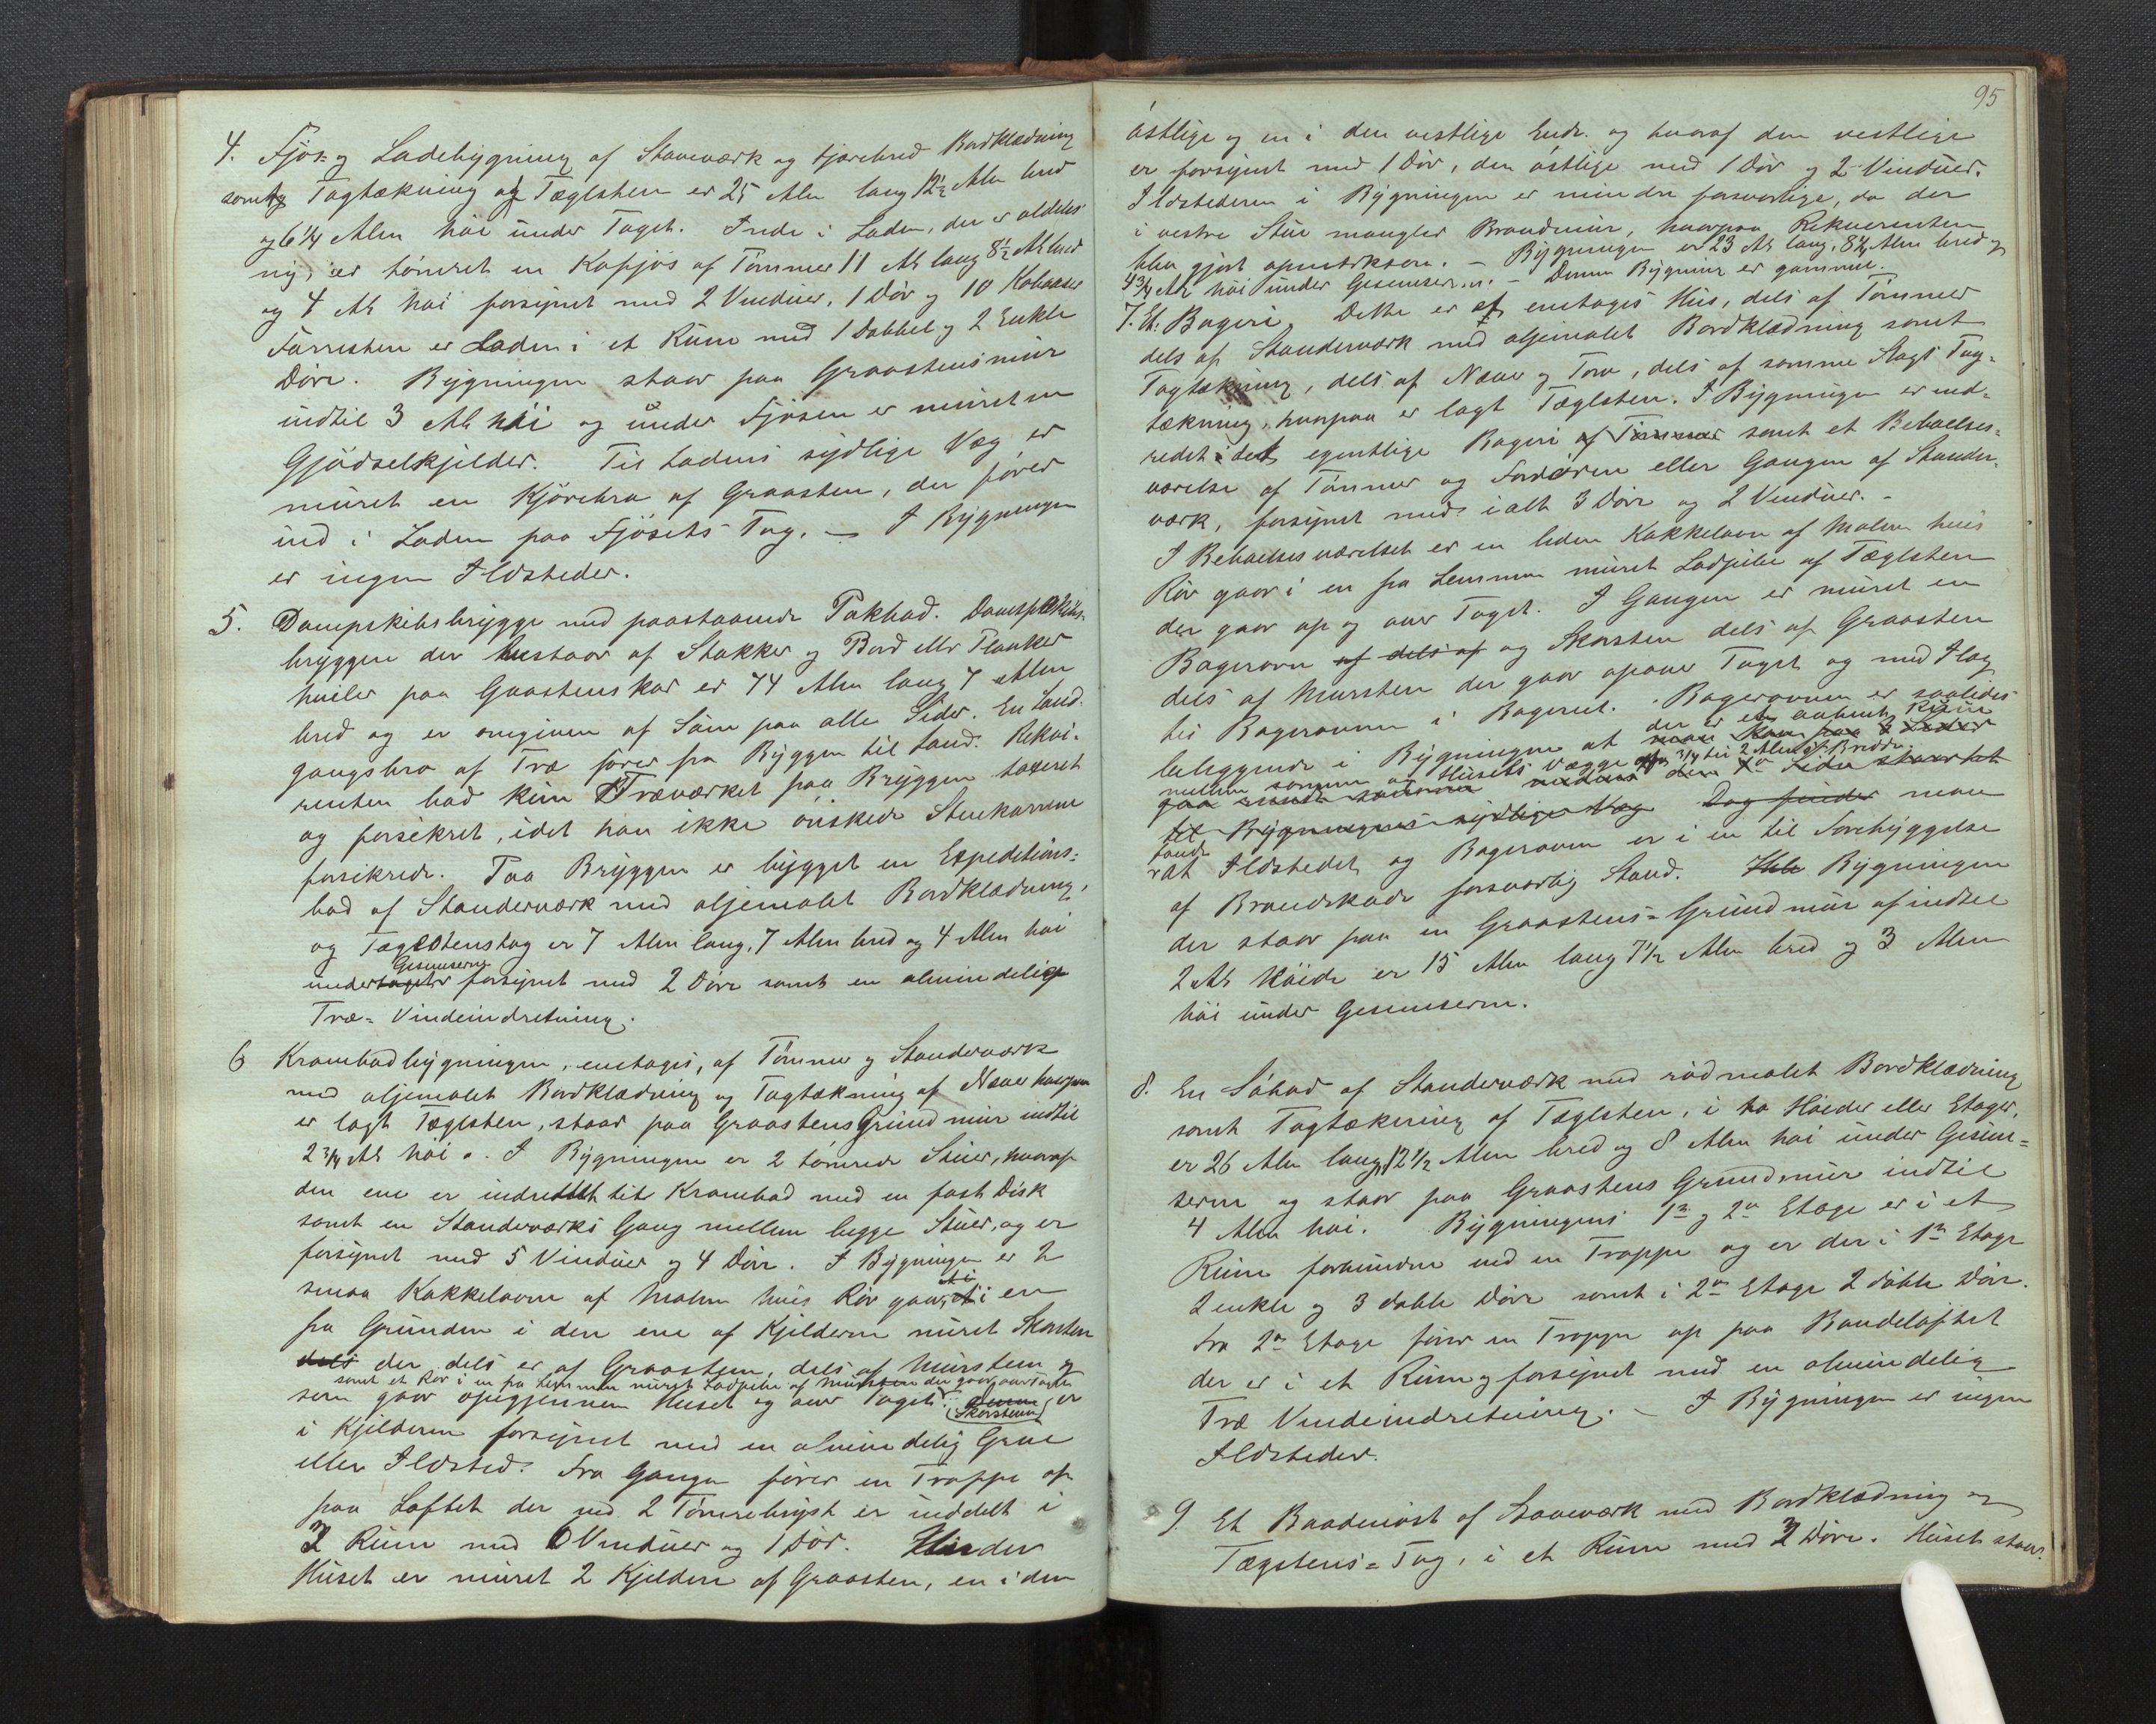 4. Fjös= og Ladebygning af Stavværk og tjærebred Bordklædning
samt Tagtækning af Tæglsten er 25 Alen lang 12½ Alen bred
og 6¼ Alen høi under Taget. Inde i Laden, der er aldeles
ny, er tømret en Kofjøs af Tømmer 11 Al. lang 8½ Al. bred
og 4 Al. høi forsynet med 2 Vinduer, 1 Dør og 10 Kobaaser
Forresten er Laden i et Rum med 1 Dobbel og 2 Enkle
Døre. Bygningen staar paa Graastensmur
indtil 3 Al. høi og under Fjøsen er muret en
Gjødselkjelder. Til Ladens sydlige Væg er
muret en Kjørebro af Graasten, der fører
ind i Laden paa Fjøsets Tag. — I Bygningen
er ingen Ildsteder.
5. Dampskibsbrygge med paastaaende Pakbod. Dampskibs-
bryggen der bestaar af Stokker og Bord eller Planker
hviler paa Graastenskar er 44 Alen lang 7 Alen
bred og er omgiven af Søen paa alle Sider. En Land-
gangsbro af Træ fører fra Bryggen til Land. Rekvi-
renten bad kun Træværket paa Bryggen taxeret
og forsikret, idet han ikke ønskede Stenkarrene
forsikrede. Paa Bryggen er bygget en Expeditions=
bod af Standerværk med oljemalet Bordklædning,
og Tæglstenstag er 7 Alen lang, 7 Alen bred og 4 Alen høi
Gesimserne
under taget forsynet med 2 Døre samt en almindelig
Træ= Vindeindretning.
6 Krambodbygningen, enetages, af Tømmer og Standerværk
med oljemalet Bordklædning og Tagtækning af Næver hvorpaa
er lagt Tæglsten, staar paa Graastens Grundmur indtil
2¾ Al. høi. I Bygningen er 2 tømrede Stuer, hvoraf
den ene er indrettet til Krambod med en fast Disk
samt en Standerværks Gang mellem begge Stuer, og er
forsynet med 5 Vinduer og 4 Døre. I Bygningen er 2
smaa Kakkelovne af Malm hvis Rør gaar i en
fra Grunden i den ene af Kjelderne muret Skorsten
dels der dels er af Graasten, dels af Mursten og
samt et Rør i en fra Lemmen muret Ladpibe af Mursten der gaar over Taget
som gaar opigjennem Huset og over Taget. denne er
(Skorstenen)
i Kjelderen forsynet med en almindelig Grue
eller Ildsted. Fra Gangen fører en Trappe op
paa Loftet der ved 2 Tømrebryst er inddelt i
3 Rum med 6 Vinduer og 1 Dør. Under
Huset er muret 2 Kjeldere af Graasten, en i den
95
østlige og en i den vestlige Ende. og hvoraf den vestlige
er forsynet med 1 Dør, den østlige med 1 Dør og 2 Vinduer.
Ildstederne i Bygningen er mindre forsvarlige, da der
i vestre Stue mangler Brandmur, hvorpaa Rekvirenten
blev gjort opmerksom. – Bygningen er 23 Al. lang, 8½ Alen bred og
4¾ Al. høi under Gesimserne. – Denne Bygning er gammel.
7. Et Bageri, Dette er et enetages Hus, dels af Tømmer
dels af Standerværk med oljemalet Bordklædning samt
Tagtækning, dels af Næver og Torv, dels af samme Slags Tag=
tækning, hvorpaa er lagt Tæglsten. I Bygningen er ind=
redet det egentlige Bageri af Tømmer samt et Beboelses=
værelse af Tømmer og Fordøren eller Gangen af Stander-
værk, forsynet med ialt 3 Døre og 2 Vinduer. –
I Beboelsesværelset er en liden Kakkelovn af Malm hvis
Rør gaar i en fra Lemmen muret Ladpibe af Tæglsten
der gaar op og over Taget. I Gangen er muret en
Bagerovn af dels af og Skorsten dels af Graasten
dels af Mursten der gaar opover Taget og med Ilæg
til Bagerovnen i Bageriet. Bagerovnen er saaledes
der er et aabent Rum
beliggende i Bygningen at man kan paa 3 Sider
mellem samme og Husets Vægge af ¾ til 2 Alens Bredde
gaa rundt samme medens den 4de Side
til Bygningens sydlige Væg. Dog finder man
fandt
at Ildstedet og Bagerovnen er i en til Forebyggelse
af Brandskade forsvarlig Stand. Bygningen
der staar paa en Graastens=Grundmur af indtil
2 Al. Høide er 15 Alen lang 7½ Alen bred og 3 Alen
høi under Gesimserne.
8. En Søbod af Standerværk med rødmalet Bordklædning
samt Tagtækning af Tæglsten, i to Høider eller Etager,
er 26 Alen lang, 12½ Alen bred og 8 Alen høi under Gesim=
serne og staar paa Graastens Grundmur indtil
4 Alen høi. Bygningens 1ste og 2den Etage er i et
Rum forbundne ved en Trappe og er der i 1ste Etage
2 enkle og 3 doble Døre samt i 2den Etage 2 doble Døre.
Fra 2den Etage fører en Trappe op paa Bondeloftet
der er i et Rum og forsynet med en almindelig
Træ Vindeindretning. – I Bygningen er ingen
Ildsteder.
9. Et Baadenøst af Stavværk med Bordklædning og
Tæglstens=Tag, i et Rum med 2 Døre. Huset staar